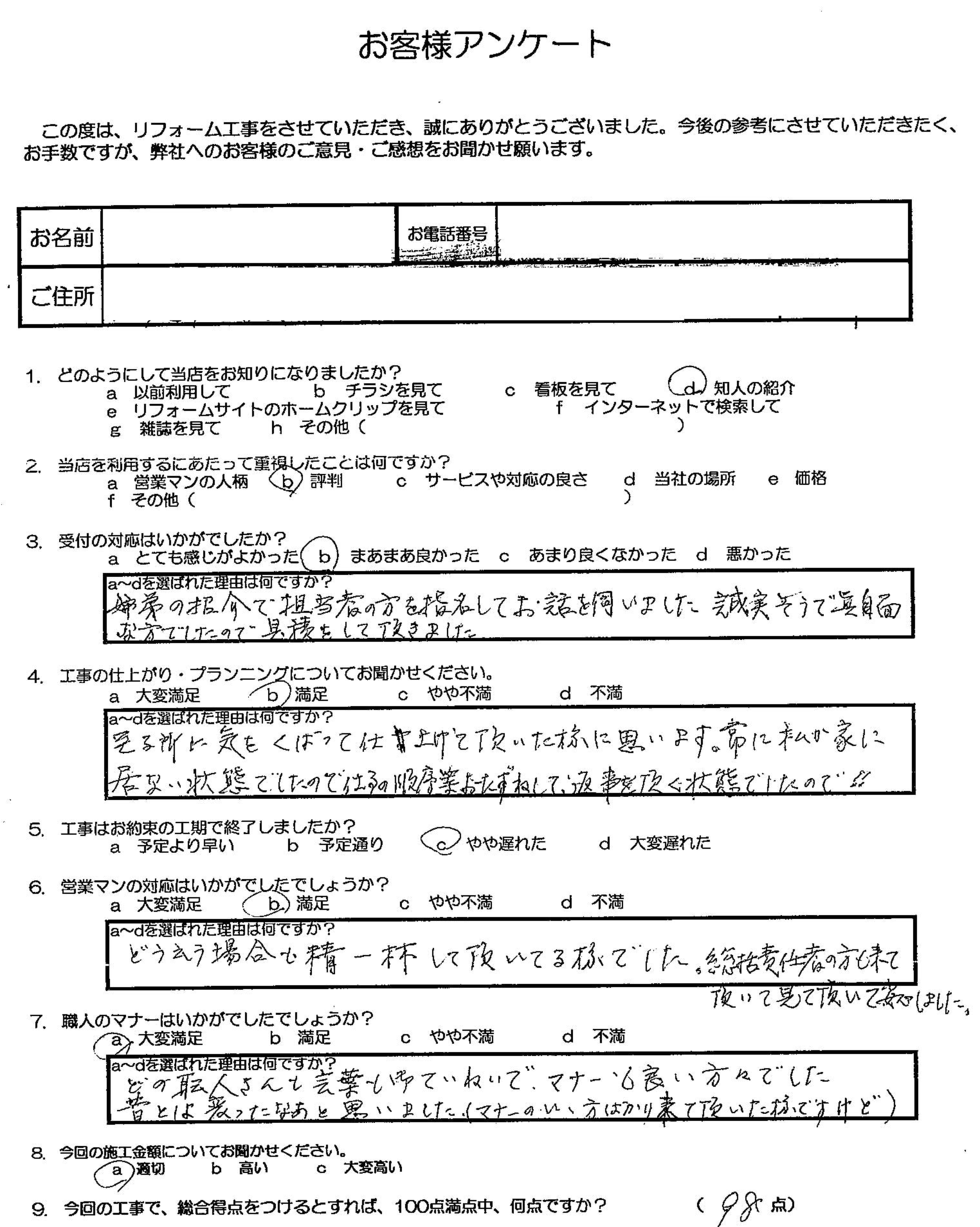 お客様アンケート
この度は、リフォーム工事をさせていただき、誠にありがとうございました。今後の参考にさせていただきたく、
お手数ですが、弊社へのお客様のご意見・ご感想をお聞かせ願います。
お名前 お電話番号
ご住所
1. どのようにして当店をお知りになりましたか?
a 以前利用して b チラシを見て c 看板を見て d 知人の紹介
e リフォームサイトのホームクリップを見て f インターネットで検索して
g 雑誌を見て h その他( )
2. 当店を利用するにあたって重視したことは何ですか?
a 営業マンの人柄 b 評判 c サービスや対応の良さ d 当社の場所 e 価格
f その他( )
3. 受付の対応はいかがでしたか?
a とても感じがよかった b まあまあ良かった c あまり良くなかった d 悪かった
a~dを選ばれた理由は何ですか?
姉弟の紹介で担当者の方を指名してお話を伺いました 誠実そうで真自面
な方でしたので見積をして頂きました
4. 工事の仕上がり・プランニングについてお聞かせください。
a 大変満足 b 満足 c やや不満 d 不満
a~dを選ばれた理由は何ですか?
至る所に気をくばって仕上げて頂いた様に思います。常に私が家に
居ない状態でしたので 順序 おたずねして、返事を頂く状態でしたので!!
5. 工事はお約束の工期で終了しましたか?
a 予定より早い b 予定通り c やや遅れた d 大変遅れた
6. 営業マンの対応はいかがでしたでしょうか?
a 大変満足 b 満足 c やや不満 d 不満
a~dを選ばれた理由は何ですか?
どう云う場合も精一杯して頂いてる様でした。総括責任者の方も来て
頂いて見て頂いて安心しました。
7. 職人のマナーはいかがでしたでしょうか?
a 大変満足 b 満足 c やや不満 d 不満
a~dを選ばれた理由は何ですか?
どの職人さんも言葉も ていねいで、マナーも良い方々でした
昔とは変ったなあと思いました(マナーのいい方ばかり来て頂いた様ですけど)
8. 今回の施工金額についてお聞かせください。
a 適切 b 高い c 大変高い
9. 今回の工事で、総合得点をつけるとすれば、100点満点中、何点ですか? ( 98 点)